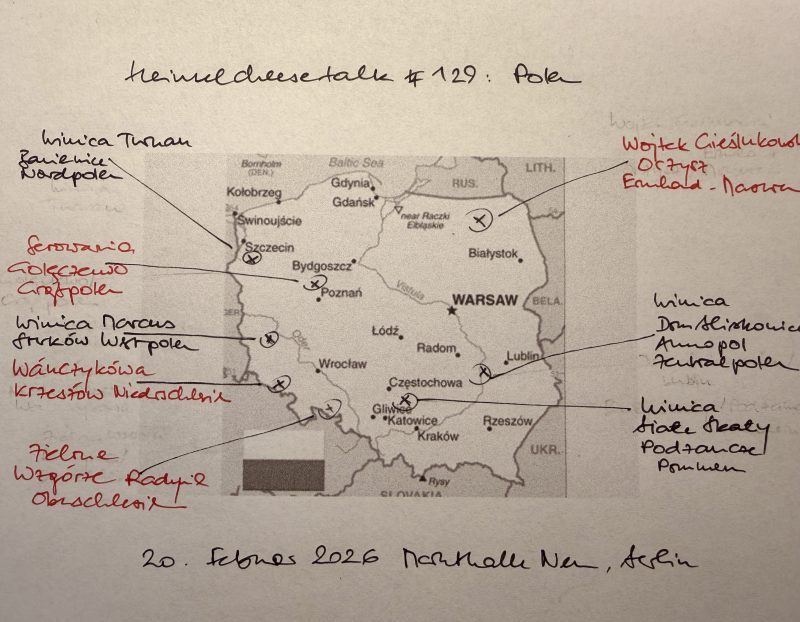 Heinzelcheesetalk # 129: Polen
Winnica Turnau
Banie
Nordpolen
Serowarnia
Golęczewo
Großpolen
Winnica Marcus
Westpolen
Wańczykówka
Krzeszów Niederschlesien
Zielone
Wzgórze Radynia
Oberschlesien
Wojtek Cieślukowski
Orzysz
Ermland-Masuren
Winnica
Dom Bliskowice
Annopol
Zentralpolen
Winnica
Białe Skały
Podzamcze
Bornholm
(DEN.)
Baltic Sea
LITH.
RUS.
Gdynia
Gdańsk
Kołobrzeg
Świnoujście
near Raczki
Elbląskie
Szczecin
Białystok
Bydgoszcz
Poznań
Vistula
WARSAW
BELA.
GER.
Oder
Łódź
Radom
Lublin
Wrocław
Częstochowa
Gliwice
Katowice
Kraków
Rzeszów
UKR.
Rysy
SLOVAKIA
20. Februar 2026 Markthalle Neun, Berlin